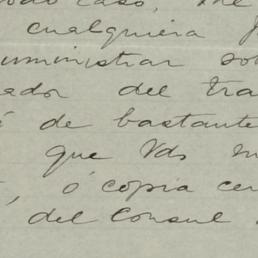 odo caso, me
cualquiera
uministrar so
ador del tra
é de bastante
que Vds
, ó copia cer
del Consul